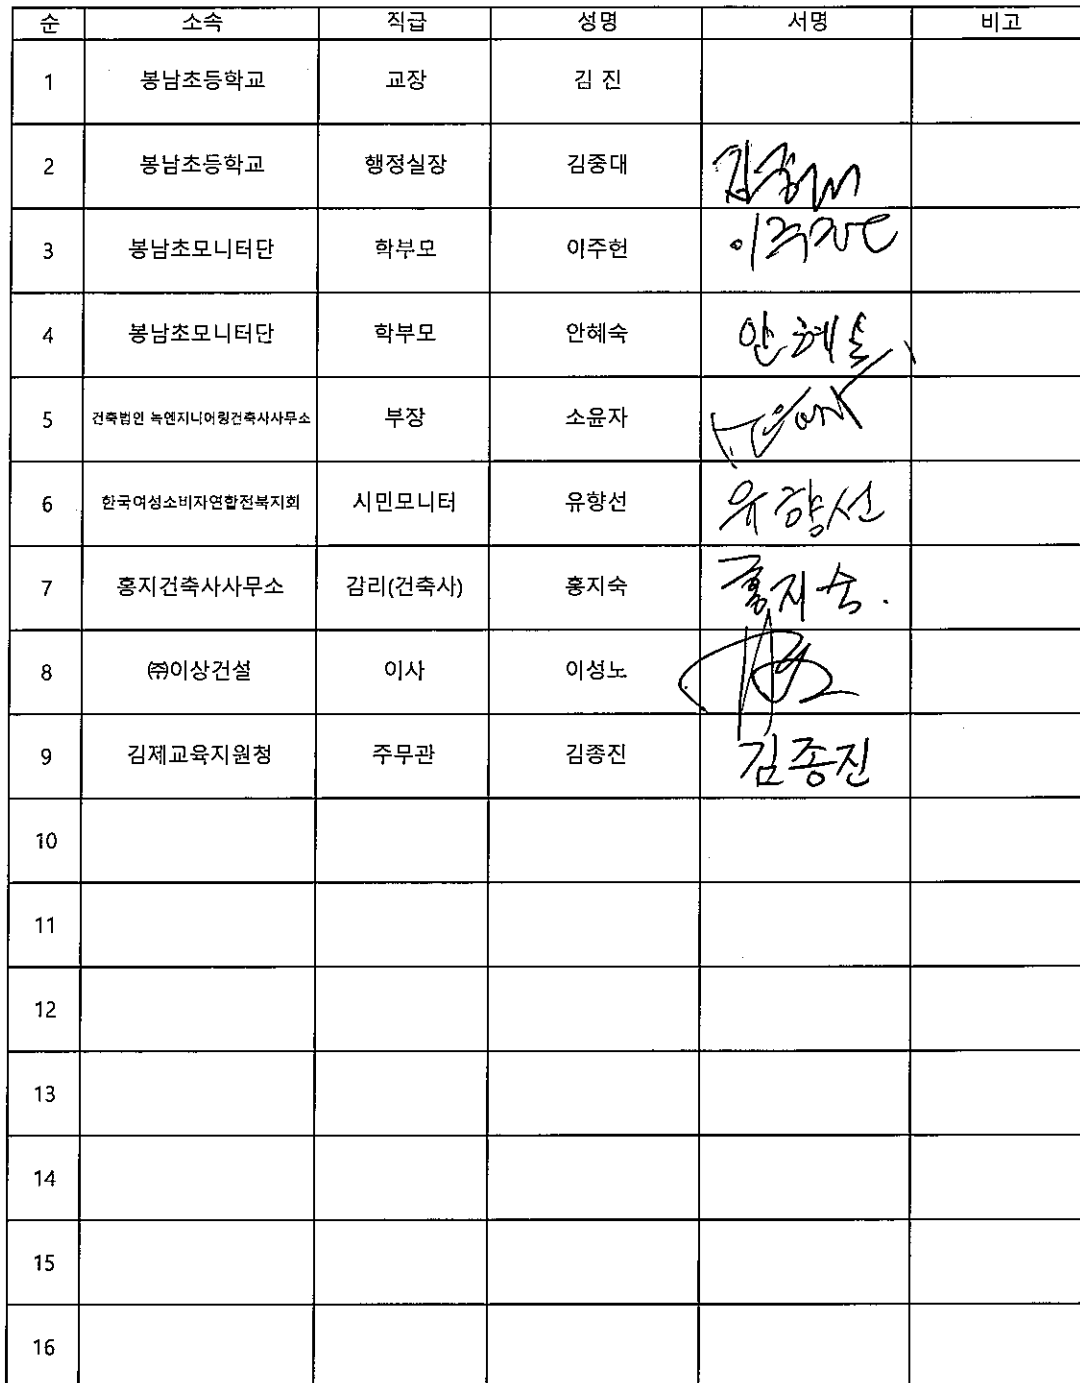 순 소속 직급 성명 서명 비고
1 봉남초등학교 교장 김 진
2 봉남초등학교 행정실장 김중대
3 봉남초모니터단 학부모 이주헌
4 봉남초모니터단 학부모 안혜숙 안혜숙
5 건축법인 녹엔지니어링건축사사무소 부장 소윤자
6 한국여성소비자연합전북지회 시민모니터 유향선 유향선
7 홍지건축사사무소 감리(건축사) 홍지숙 홍지숙.
8 ㈜이상건설 이사 이성노
9 김제교육지원청 주무관 김종진 김종진
10
11
12
13
14
15
16